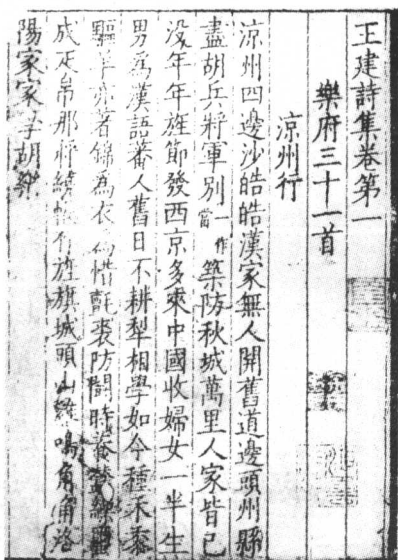 王建詩集卷第一
樂府三十一首
涼州行
涼州四邊沙皓皓漢家無人開舊道邊頭州縣
盡胡兵將軍別一作當築防秋城萬里人家皆已
沒年年旌節發西京多來中國收婦女一半生
男為漢語蕃人舊日不耕犁相學如今種禾黍
驅羊亦著錦為衣為惜氈裘防鬬時養蠶繅繭
成疋帛那將繞帳作旌旗城頭山雞鳴角角洛
陽家家學胡樂